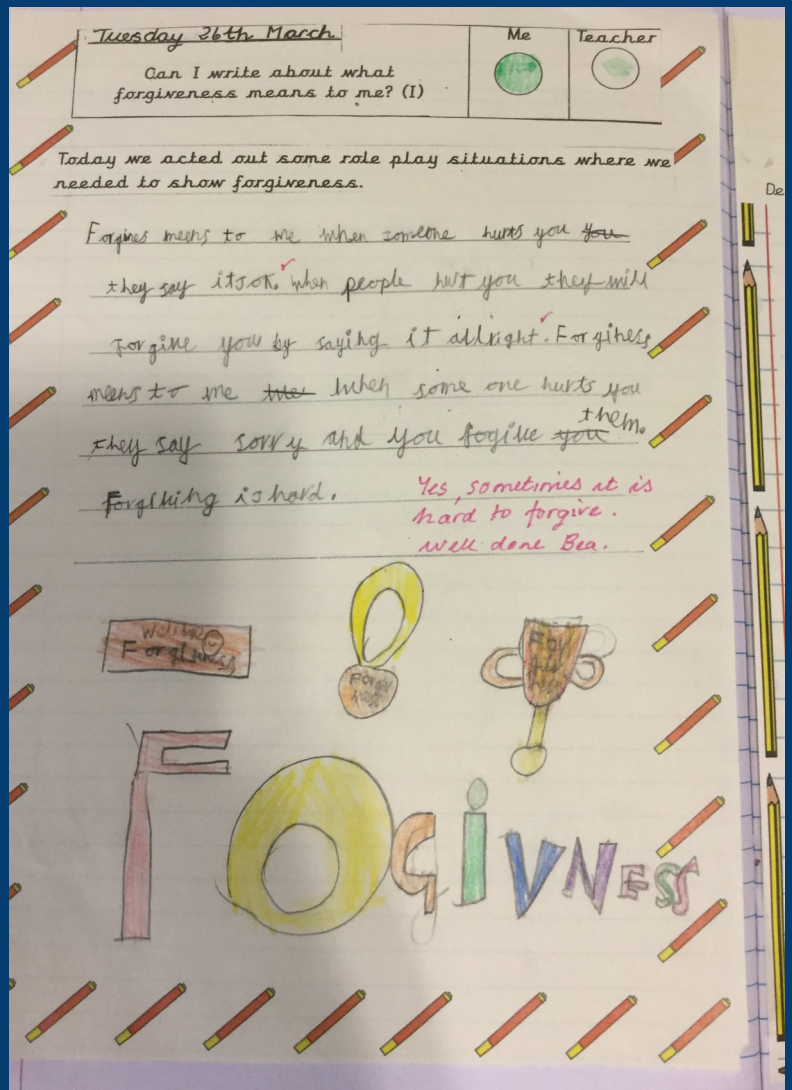 Tuesday 26th March
Me
Teacher
Can I write about what
forgiveness means to me? (I)
Today we acted out some role play situations where we
needed to show forgiveness.
De
Forgines meens to me when someone hurts you you
they say itsok. when people hurt you they will
Forgive you by saying it allright. Forginess
meens to me when some one hurts you
they say sorry and you fogive you them.
Forgiving is hard.
Yes, sometimes it is
hard to forgive.
Well done Bea.
Forgivness
Forgiv
ness
For
giv
ness
FOgiVNESS